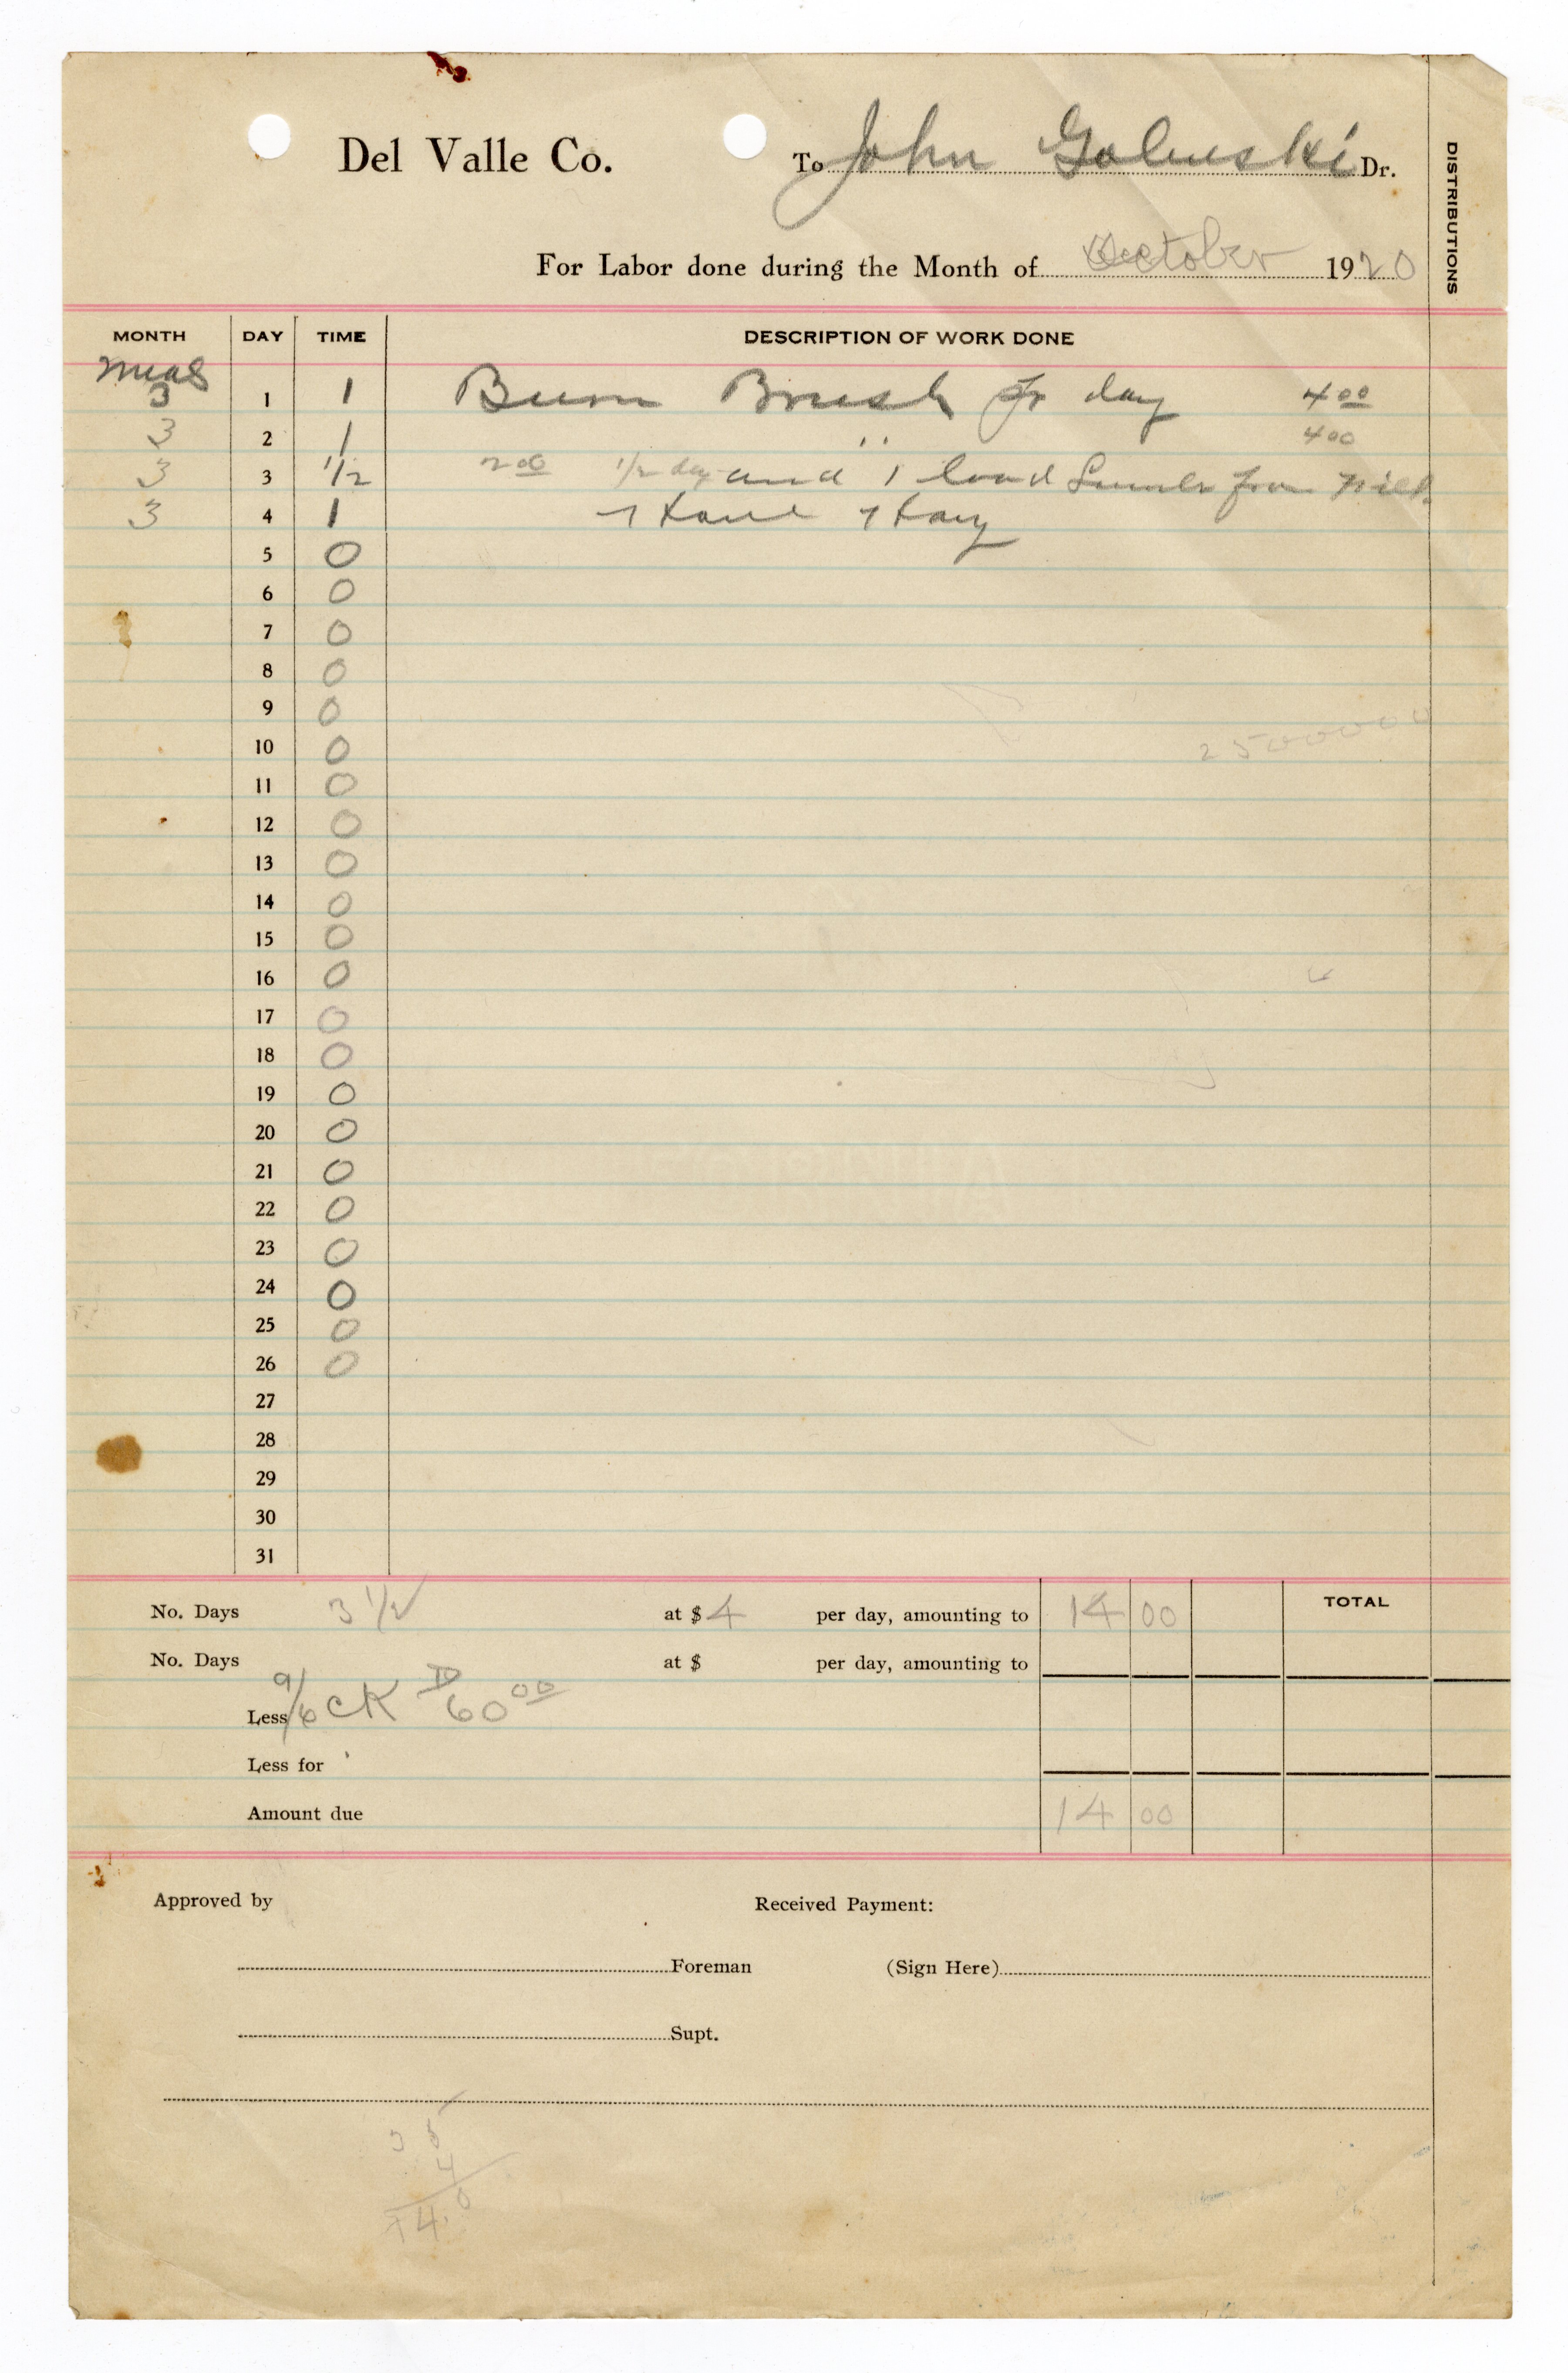 Del Valle Co. To John Golinski Dr.
DISTRIBUTIONS
For Labor done during the Month of October 1920
MONTH DAY TIME DESCRIPTION OF WORK DONE
Meals
3 1 1 Burn Brush for day 4 00
3 2 1 " 4 00
3 3 1/2 2 00 1/2 day and 1 load from Mill
3 4 1
5 0
6 0
7 0
8 0
9 0
10 0 2500000
11 0
12 0
13 0
14 0
15 0
16 0
17 0
18 0
19 0
20 0
21 0
22 0
23 0
24 0
25 0
26 0
27
28
29
30
31
No. Days 3 1/2 at $ 4 per day, amounting to 14 00 TOTAL
No. Days at $ per day, amounting to
Less 9/6 CK D 60 00
Less for
Amount due 14 00
Approved by Received Payment:
Foreman (Sign Here)
Supt.
3 5
4
14.0